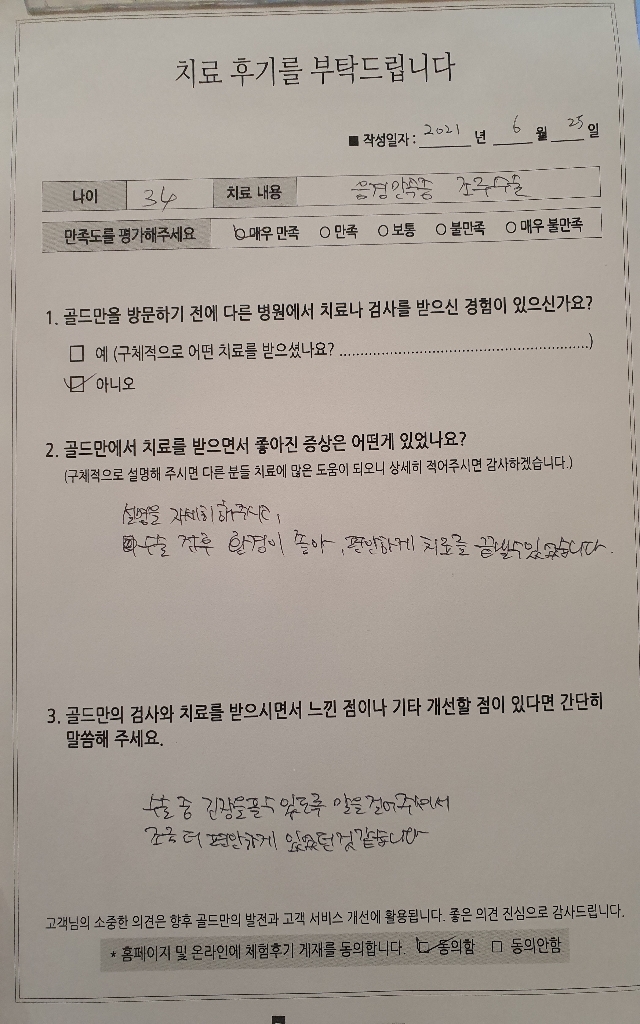 치료 후기를 부탁드립니다
■ 작성일자 : 2021 년 6 월 25 일
나이 34 치료 내용 음경만곡증 조루수술
만족도를 평가해주세요 매우 만족 만족 보통 불만족 매우 불만족
1. 골드만을 방문하기 전에 다른 병원에서 치료나 검사를 받으신 경험이 있으신가요?
예 (구체적으로 어떤 치료를 받으셨나요? )
아니오
2. 골드만에서 치료를 받으면서 좋아진 증상은 어떤게 있었나요?
(구체적으로 설명해 주시면 다른 분들 치료에 많은 도움이 되오니 상세히 적어주시면 감사하겠습니다.)
설명을 자세히 해주시고,
수술 전후 환경이 좋아, 편안하게 치료를 끝낼수있었습니다.
3. 골드만의 검사와 치료를 받으시면서 느낀 점이나 기타 개선할 점이 있다면 간단히
말씀해 주세요.
수술 중 긴장을풀수 있도록 말을걸어주셔서
조금 더 편안하게 있었던것 같습니다
고객님의 소중한 의견은 향후 골드만의 발전과 고객 서비스 개선에 활용됩니다. 좋은 의견 진심으로 감사드립니다.
* 홈페이지 및 온라인에 체험후기 게재를 동의합니다. 동의함 동의안함